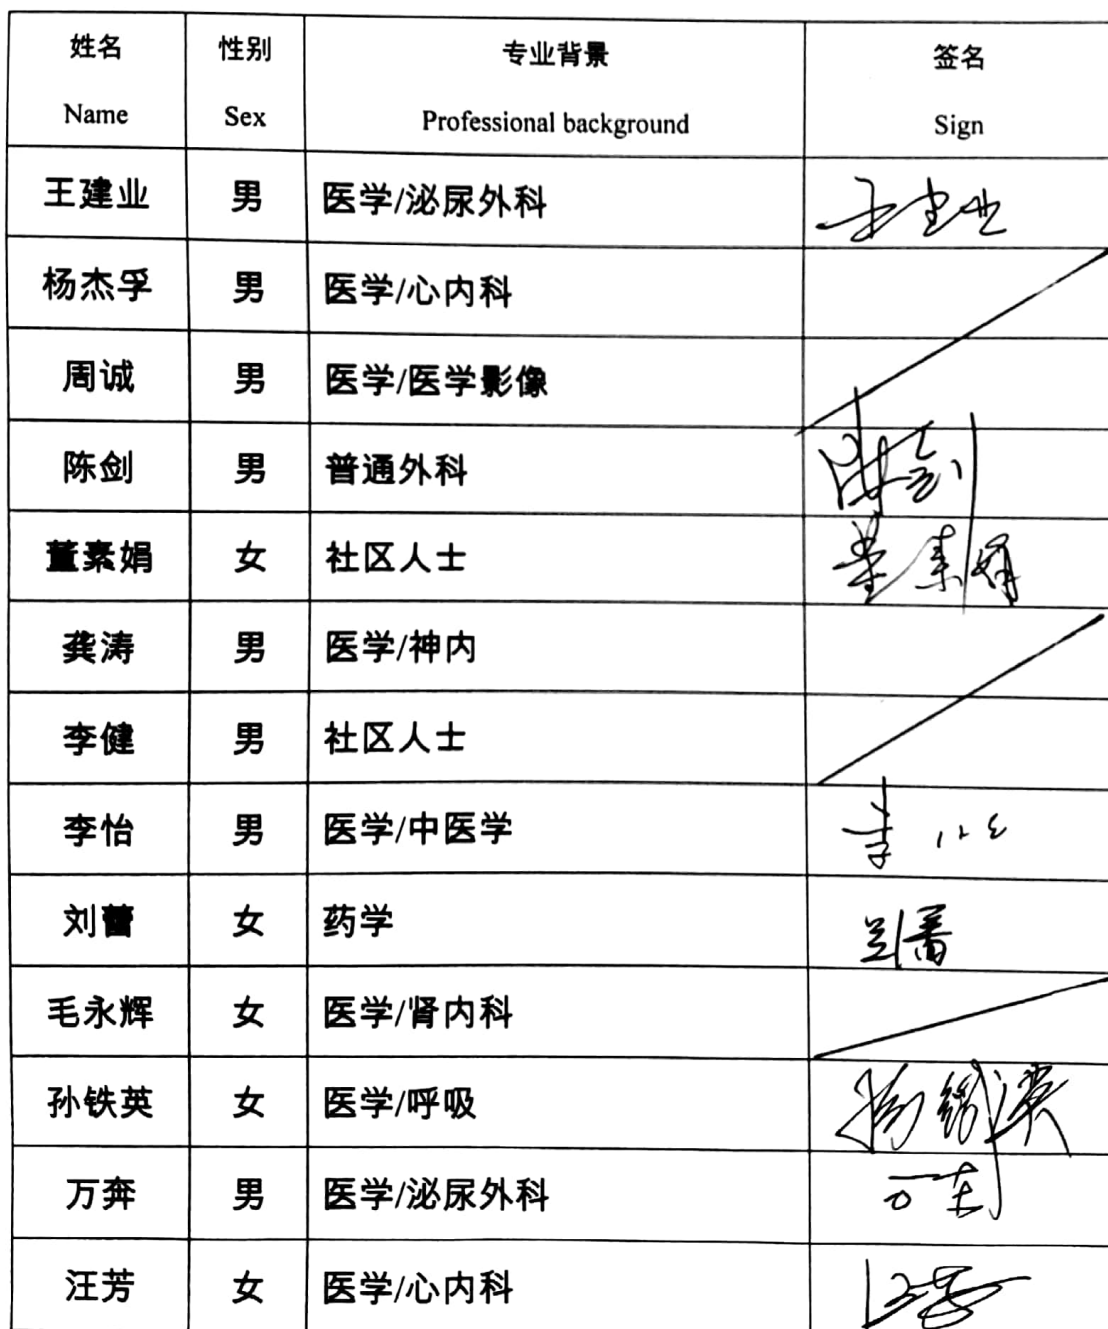 姓名 性别 专业背景 签名
Name Sex Professional background Sign
王建业 男 医学/泌尿外科 王建业
杨杰孚 男 医学/心内科
周诚 男 医学/医学影像
陈剑 男 普通外科 陈剑
董素娟 女 社区人士 董素娟
龚涛 男 医学/神内
李健 男 社区人士
李怡 男 医学/中医学 李怡
刘蕾 女 药学 刘蕾
毛永辉 女 医学/肾内科
孙铁英 女 医学/呼吸
万奔 男 医学/泌尿外科 万奔
汪芳 女 医学/心内科 汪芳